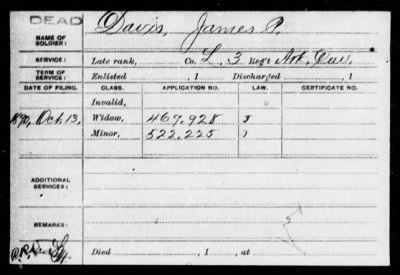 DEAD
NAME OF SOLDIER: Davis, James P.
SERVICE: Late rank, Co. L, 3 Reg't Ark. Cav.
TERM OF SERVICE: Enlisted , 1 Discharged , 1
DATE OF FILING. CLASS. APPLICATION NO. LAW. CERTIFICATE NO.
Invalid,
1890, Oct. 13, Widow, 467,928 J
Minor, 522,225 J
ADDITIONAL SERVICES:
REMARKS:
Died , 1 , at